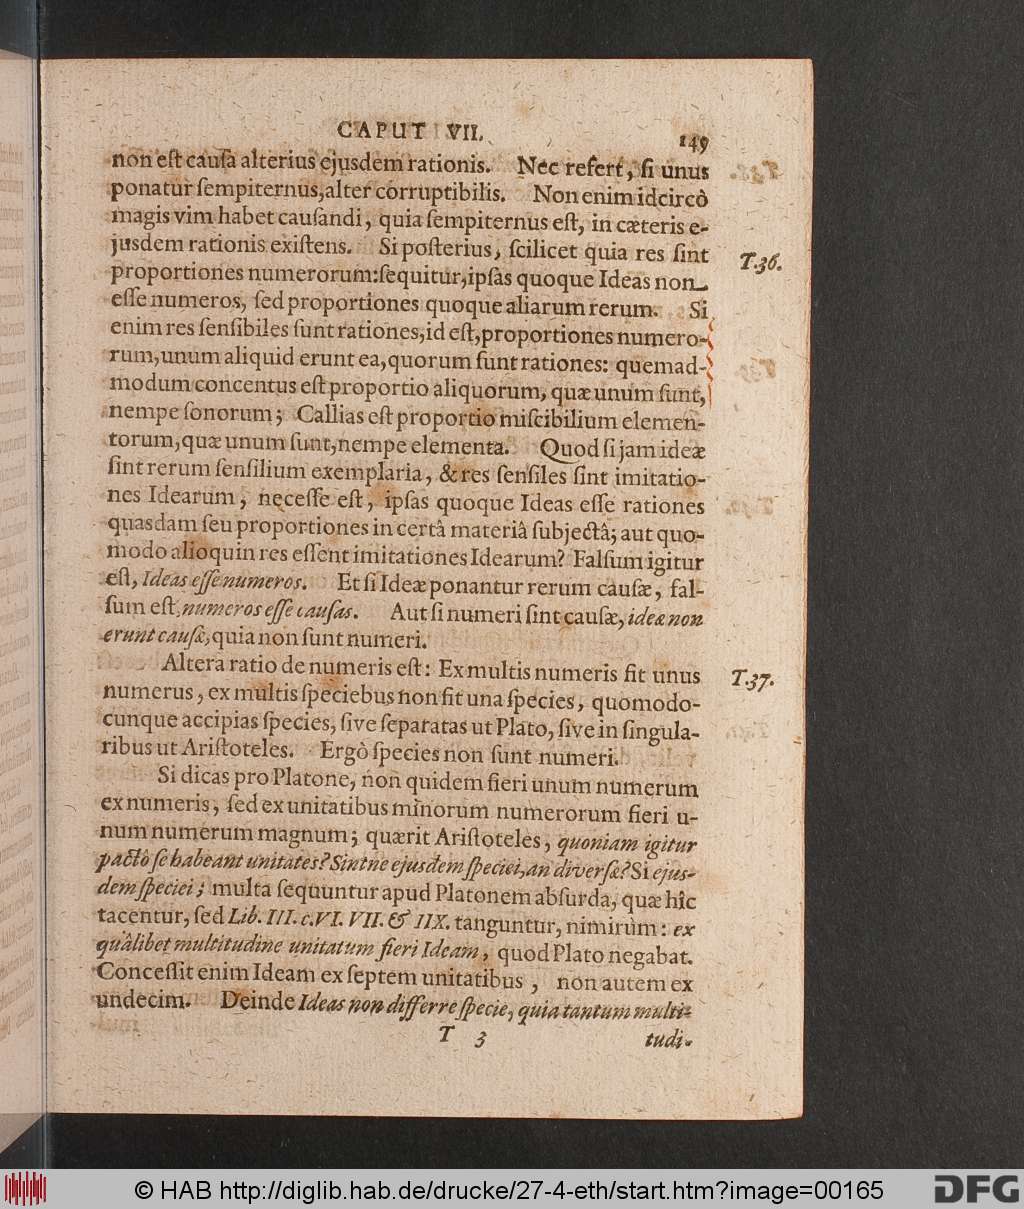 CAPUT VII. 149
non eſt cauſa alterius ejusdem rationis. Nec refert, ſi unus
ponatur ſempiternus, alter corruptibilis. Non enim idcircò
magis vim habet cauſandi, quia ſempiternus eſt, in cæteris e-
jusdem rationis exiſtens. Si poſterius, ſcilicet quia res ſint
T. 36.
proportiones numerorum: ſequitur, ipſas quoque Ideas non
eſſe numeros, ſed proportiones quoque aliarum rerum. Si
enim res ſenſibiles ſunt rationes, id eſt, proportiones numero-
rum, unum aliquid erunt ea, quorum ſunt rationes: quemad-
modum concentus eſt proportio aliquorum, quæ unum ſunt,
nempe ſonorum; Callias eſt proportio miſcibilium elemen-
torum, quæ unum ſunt, nempe elementa. Quod ſi jam ideæ
ſint rerum ſenſilium exemplaria, & res ſenſiles ſint imitatio-
nes Idearum, neceſſe eſt, ipſas quoque Ideas eſſe rationes
quasdam ſeu proportiones in certâ materiâ ſubjectâ; aut quo-
modo alioquin res eſſent imitationes Idearum? Falſum igitur
eſt, Ideas eſſe numeros. Et ſi Ideæ ponantur rerum cauſæ, fal-
ſum eſt, numeros eſſe cauſas. Aut ſi numeri ſint cauſæ, ideæ non
erunt cauſæ, quia non ſunt numeri.
Altera ratio de numeris eſt: Ex multis numeris fit unus
T. 37.
numerus, ex multis ſpeciebus non fit una ſpecies, quomodo-
cunque accipias ſpecies, ſive ſeparatas ut Plato, ſive in ſingula-
ribus ut Ariſtoteles. Ergò ſpecies non ſunt numeri.
Si dicas pro Platone, non quidem fieri unum numerum
ex numeris, ſed ex unitatibus minorum numerorum fieri u-
num numerum magnum; quærit Ariſtoteles, quoniam igitur
pactô ſe habeant unitates? Sintne ejusdem ſpeciei, an diverſæ? Si ejus-
dem ſpeciei; multa ſequuntur apud Platonem abſurda, quæ hîc
tacentur, ſed Lib. III. c. VI. VII. & IIX. tanguntur, nimirùm: ex
quâlibet multitudine unitatum fieri Ideam, quod Plato negabat.
Conceſſit enim Ideam ex ſeptem unitatibus, non autem ex
undecim. Deinde Ideas non differre ſpecie, quia tantum multi-
T 3 tudi-
© HAB http://diglib.hab.de/drucke/27-4-eth/start.htm?image=00165 DFG